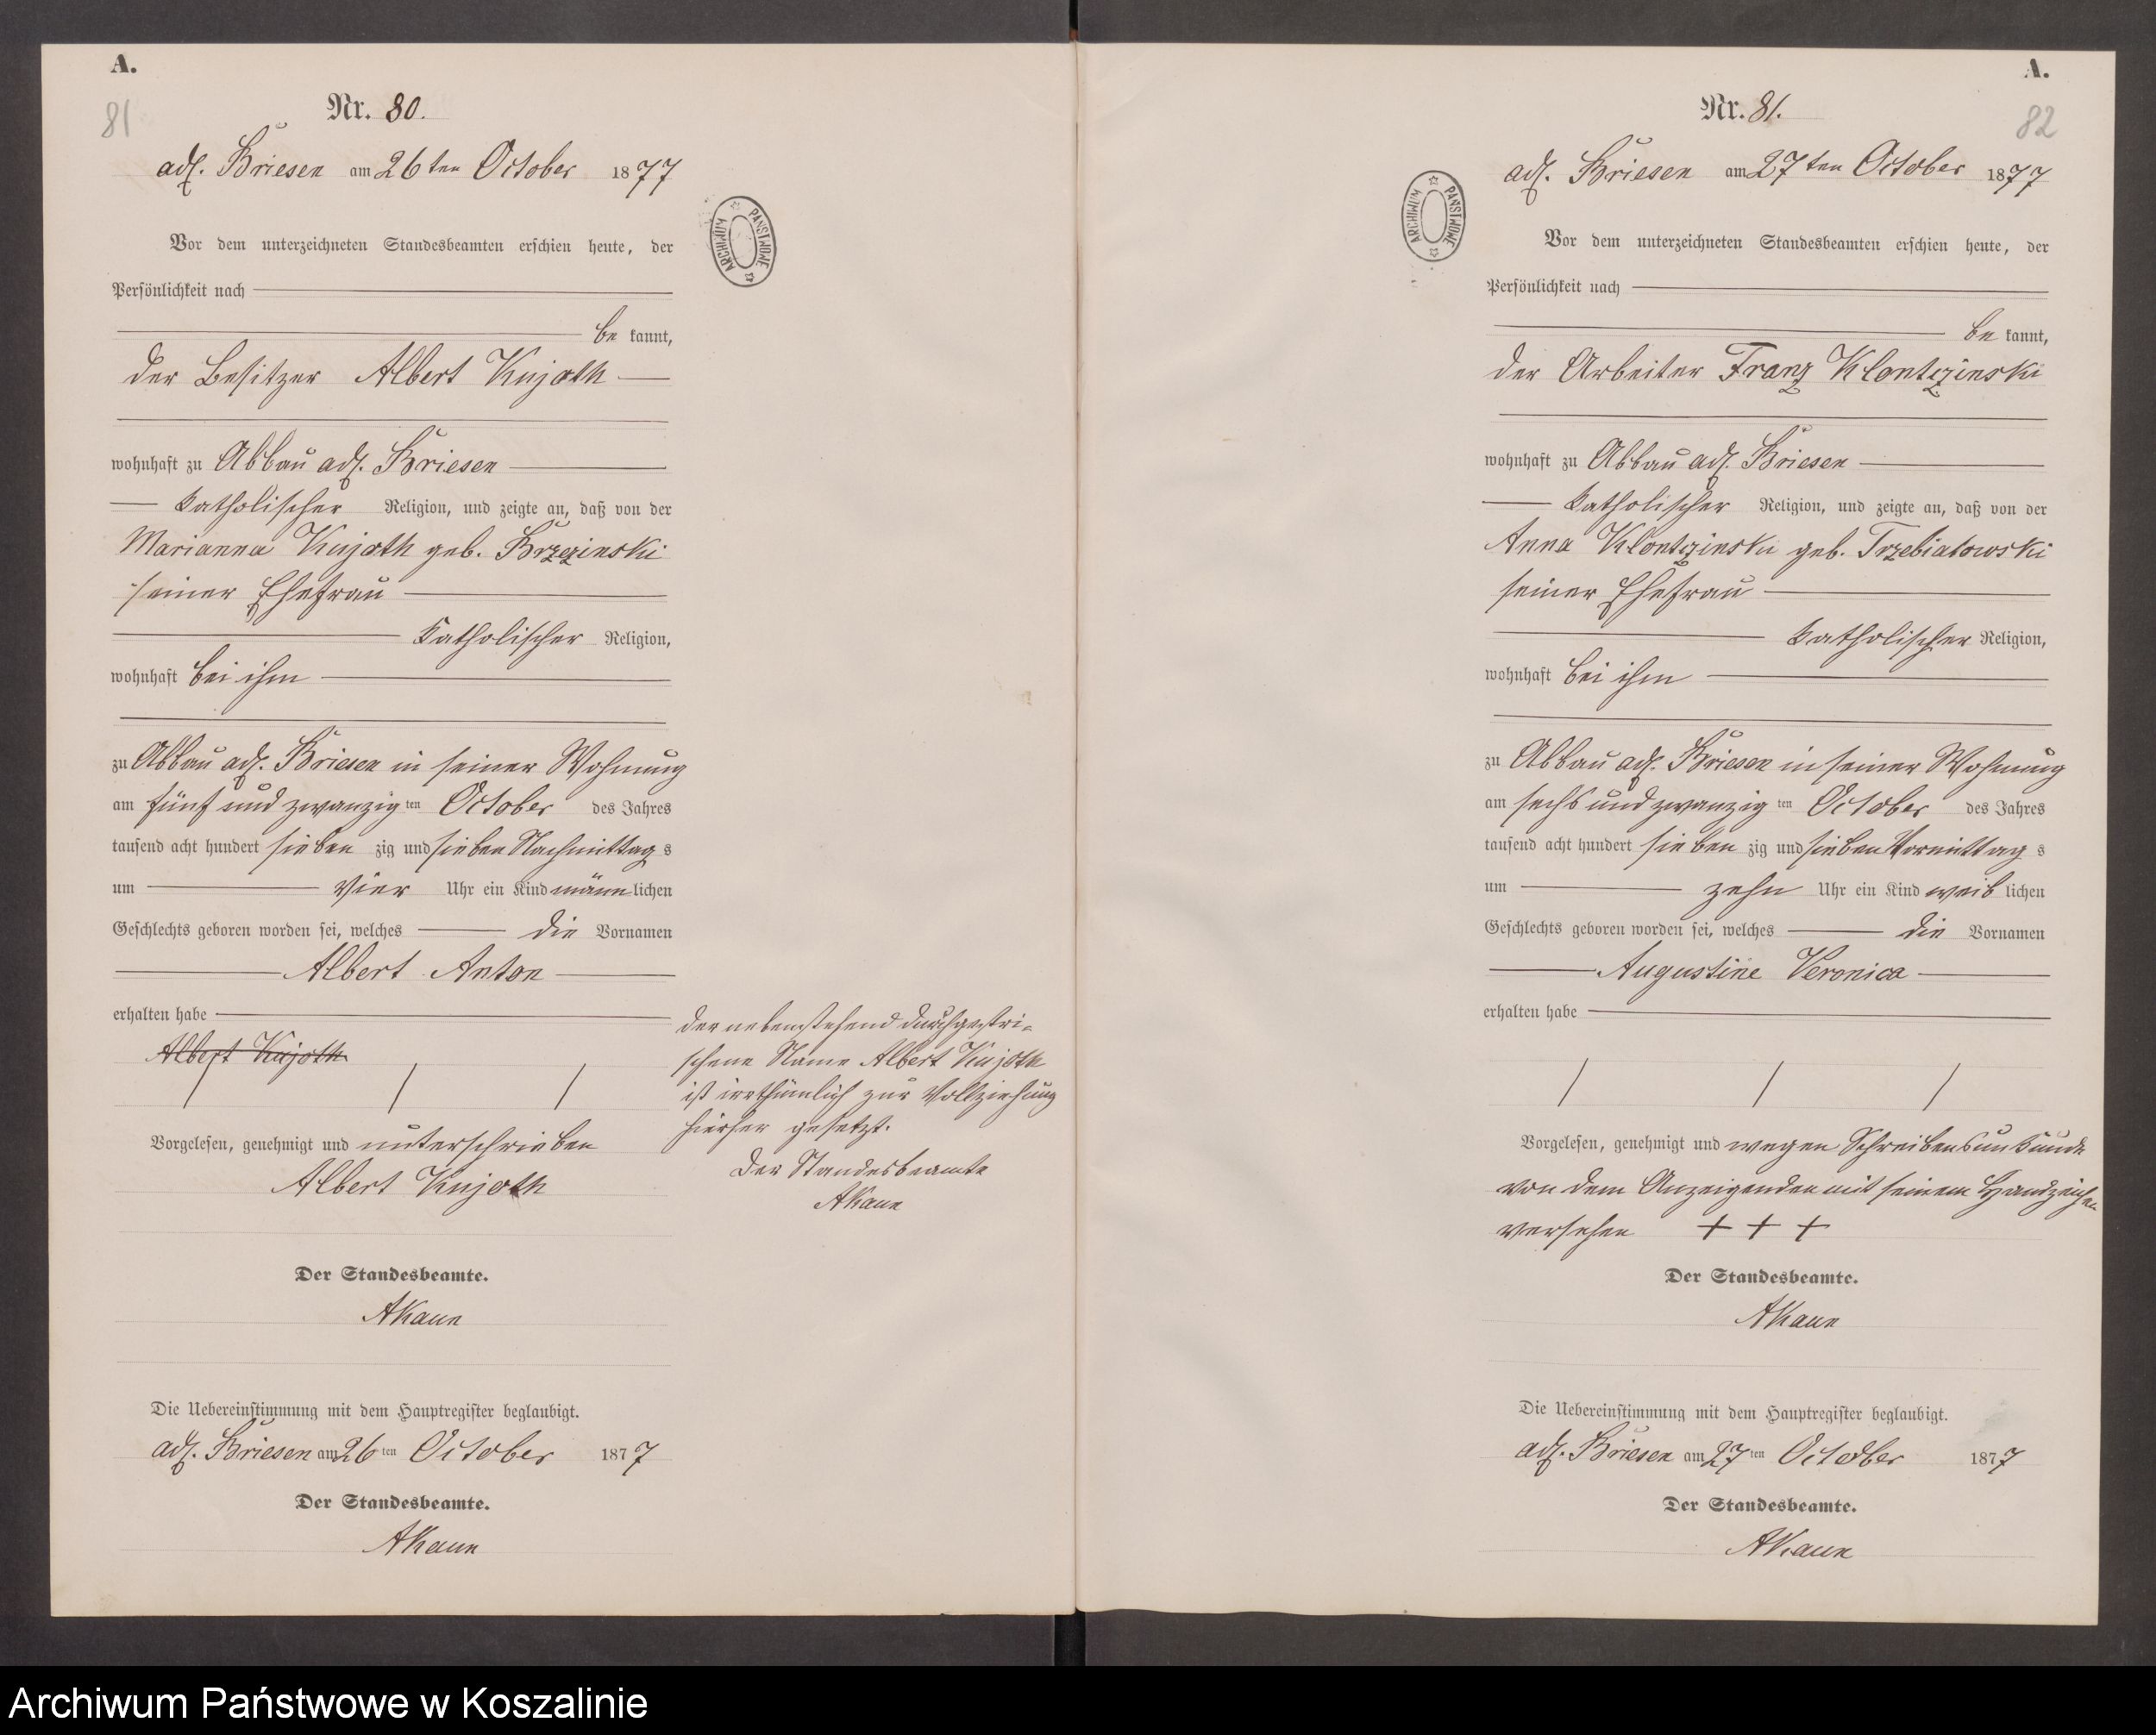 A.
81
Nr. 80.
adl. Briesen am 26ten October 1877
Vor dem unterzeichneten Standesbeamten erschien heute, der
Persönlichkeit nach
be kannt,
der Besitzer Albert Kujath
wohnhaft zu Abbau adl. Briesen
katholischer Religion, und zeigte an, daß von der
Marianna Kujath geb. Brzezinski
seiner Ehefrau
katholischer Religion,
wohnhaft bei ihm
zu Abbau adl. Briesen in seiner Wohnung
am fünf und zwanzig ten October des Jahres
tausend acht hundert sieben zig und sieben Nachmittag s
um vier Uhr ein Kind männ lichen
Geschlechts geboren worden sei, welches die Vornamen
Albert Anton
erhalten habe
Albert Kujoth
Vorgelesen, genehmigt und unterschrieben
Albert Kujoth
Der Standesbeamte.
AKaun
Die Uebereinstimmung mit dem Hauptregister beglaubigt.
adl. Briesen am 26 ten October 1877
Der Standesbeamte.
AKaun
der nebenstehend durchgestri-
chene Name Albert Kujoth
ist irrthümlich zur Vollziehung
hierher gesetzt.
Der Standesbeamte
AKaun
ARCHIWUM PAŃSTWOWE
A.
82
Nr. 81.
adl. Briesen am 27ten October 1877
ARCHIWUM PAŃSTWOWE
Vor dem unterzeichneten Standesbeamten erschien heute, der
Persönlichkeit nach
be kannt,
der Arbeiter Franz Klontzinski
wohnhaft zu Abbau adl. Briesen
katholischer Religion, und zeigte an, daß von der
Anna Klontzinski geb. Trzebiatowski
seiner Ehefrau
katholischer Religion,
wohnhaft bei ihm
zu Abbau adl. Briesen in seiner Wohnung
am sechs und zwanzig ten October des Jahres
tausend acht hundert sieben zig und sieben Vormittag s
um zehn Uhr ein Kind weib lichen
Geschlechts geboren worden sei, welches die Vornamen
Augustine Veronica
erhalten habe
Vorgelesen, genehmigt und wegen Schreibensunkunde
von dem Anzeigenden mit seinem Handzeichen
versehen + + +
Der Standesbeamte.
AKaun
Die Uebereinstimmung mit dem Hauptregister beglaubigt.
adl. Briesen am 27 ten October 1877
Der Standesbeamte.
AKaun
Archiwum Państwowe w Koszalinie